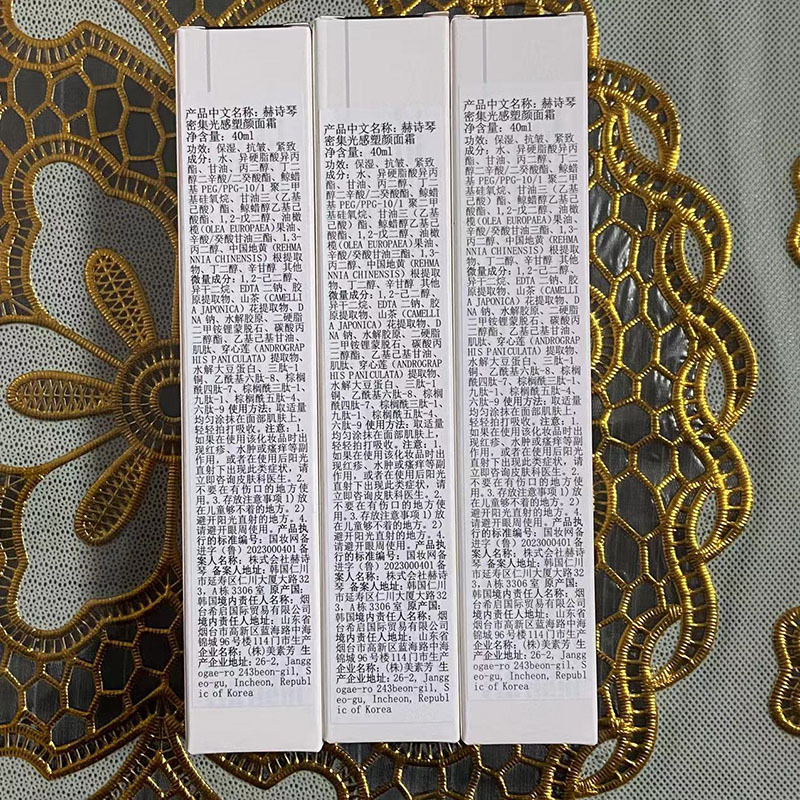 产品中文名称：赫诗琴
密集光感塑颜面霜
净含量：40ml
功效：保湿、抗皱、紧致
成分：水、异硬脂酸异丙
酯、甘油、丙二醇、丁二
醇二辛酸/二癸酸酯、鲸蜡
基 PEG/PPG-10/1 聚二甲
基硅氧烷、甘油三（乙基
己酸）酯、鲸蜡醇乙基己
酸酯、1,2-戊二醇、油橄
榄(OLEA EUROPAEA)果油、
辛酸/癸酸甘油三酯、1,3-
丙二醇、中国地黄(REHMA
NNIA CHINENSIS) 根提取
物、丁二醇、辛甘醇 其他
微量成分：1,2-己二醇、
异十二烷、EDTA 二钠、胶
原提取物、山茶(CAMELLI
A JAPONICA) 花提取物、D
NA 钠、水解胶原、二硬脂
二甲铵锂蒙脱石、碳酸丙
二醇酯、乙基己基甘油、
肌肽、穿心莲(ANDROGRAP
HIS PANICULATA) 提取物、
水解大豆蛋白、三肽-1
铜、乙酰基六肽-8、棕榈
酰四肽-7、棕榈酰三肽-
1、棕榈酰五肽-4、
六肽-9 使用方法：取适量
均匀涂抹在面部肌肤上，
轻轻拍打吸收。注意：1.
如果在使用该化妆品时出
现红疹、水肿或瘙痒等副
作用，或者在使用后阳光
直射下出现此类症状，请
立即咨询皮肤科医生。2.
不要在有伤口的地方使
用。3.存放注意事项 1）放
在儿童够不着的地方。2）
避开阳光直射的地方。4.
请避开眼周使用。产品执
行的标准编号：国妆网备
进字（鲁）2023000401 备
案人名称：株式会社赫诗
琴 备案人地址：韩国仁川
市延寿区仁川大厦大路32
3，A栋 3306 室 原产国：
韩国境内责任人名称：烟
台希启国际贸易有限公司
境内责任人地址：山东省
烟台市高新区蓝海路中海
锦城 96 号楼 114 门市生产
企业名称：(株)美素芳 生
产企业地址：26-2, Jangg
ogae-ro 243beon-gil, S
eo-gu, Incheon, Republ
ic of Korea
产品中文名称：赫诗琴
密集光感塑颜面霜
净含量：40ml
功效：保湿、抗皱、紧致
成分：水、异硬脂酸异丙
酯、甘油、丙二醇、丁二
醇二辛酸/二癸酸酯、鲸蜡
基 PEG/PPG-10/1 聚二甲
基硅氧烷、甘油三（乙基
己酸）酯、鲸蜡醇乙基己
酸酯、1,2-戊二醇、油橄
榄(OLEA EUROPAEA)果油、
辛酸/癸酸甘油三酯、1,3-
丙二醇、中国地黄(REHMA
NNIA CHINENSIS) 根提取
物、丁二醇、辛甘醇 其他
微量成分：1,2-己二醇、
异十二烷、EDTA 二钠、胶
原提取物、山茶(CAMELLI
A JAPONICA) 花提取物、D
NA 钠、水解胶原、二硬脂
二甲铵锂蒙脱石、碳酸丙
二醇酯、乙基己基甘油、
肌肽、穿心莲(ANDROGRAP
HIS PANICULATA) 提取物、
水解大豆蛋白、三肽-1
铜、乙酰基六肽-8、棕榈
酰四肽-7、棕榈酰三肽-
1、棕榈酰五肽-4、
六肽-9 使用方法：取适量
均匀涂抹在面部肌肤上，
轻轻拍打吸收。注意：1.
如果在使用该化妆品时出
现红疹、水肿或瘙痒等副
作用，或者在使用后阳光
直射下出现此类症状，请
立即咨询皮肤科医生。2.
不要在有伤口的地方使
用。3.存放注意事项 1）放
在儿童够不着的地方。2）
避开阳光直射的地方。4.
请避开眼周使用。产品执
行的标准编号：国妆网备
进字（鲁）2023000401 备
案人名称：株式会社赫诗
琴 备案人地址：韩国仁川
市延寿区仁川大厦大路32
3，A栋 3306 室 原产国：
韩国境内责任人名称：烟
台希启国际贸易有限公司
境内责任人地址：山东省
烟台市高新区蓝海路中海
锦城 96 号楼 114 门市生产
企业名称：(株)美素芳 生
产企业地址：26-2, Jangg
ogae-ro 243beon-gil, S
eo-gu, Incheon, Republ
ic of Korea
产品中文名称：赫诗琴
密集光感塑颜面霜
净含量：40ml
功效：保湿、抗皱、紧致
成分：水、异硬脂酸异丙
酯、甘油、丙二醇、丁二
醇二辛酸/二癸酸酯、鲸蜡
基 PEG/PPG-10/1 聚二甲
基硅氧烷、甘油三（乙基
己酸）酯、鲸蜡醇乙基己
酸酯、1,2-戊二醇、油橄
榄(OLEA EUROPAEA)果油、
辛酸/癸酸甘油三酯、1,3-
丙二醇、中国地黄(REHMA
NNIA CHINENSIS) 根提取
物、丁二醇、辛甘醇 其他
微量成分：1,2-己二醇、
异十二烷、EDTA 二钠、胶
原提取物、山茶(CAMELLI
A JAPONICA) 花提取物、D
NA 钠、水解胶原、二硬脂
二甲铵锂蒙脱石、碳酸丙
二醇酯、乙基己基甘油、
肌肽、穿心莲(ANDROGRAP
HIS PANICULATA) 提取物、
水解大豆蛋白、三肽-1
铜、乙酰基六肽-8、棕榈
酰四肽-7、棕榈酰三肽-
1、棕榈酰五肽-4、
六肽-9 使用方法：取适量
均匀涂抹在面部肌肤上，
轻轻拍打吸收。注意：1.
如果在使用该化妆品时出
现红疹、水肿或瘙痒等副
作用，或者在使用后阳光
直射下出现此类症状，请
立即咨询皮肤科医生。2.
不要在有伤口的地方使
用。3.存放注意事项 1）放
在儿童够不着的地方。2）
避开阳光直射的地方。4.
请避开眼周使用。产品执
行的标准编号：国妆网备
进字（鲁）2023000401 备
案人名称：株式会社赫诗
琴 备案人地址：韩国仁川
市延寿区仁川大厦大路32
3，A栋 3306 室 原产国：
韩国境内责任人名称：烟
台希启国际贸易有限公司
境内责任人地址：山东省
烟台市高新区蓝海路中海
锦城 96 号楼 114 门市生产
企业名称：(株)美素芳 生
产企业地址：26-2, Jangg
ogae-ro 243beon-gil, S
eo-gu, Incheon, Republ
ic of Korea